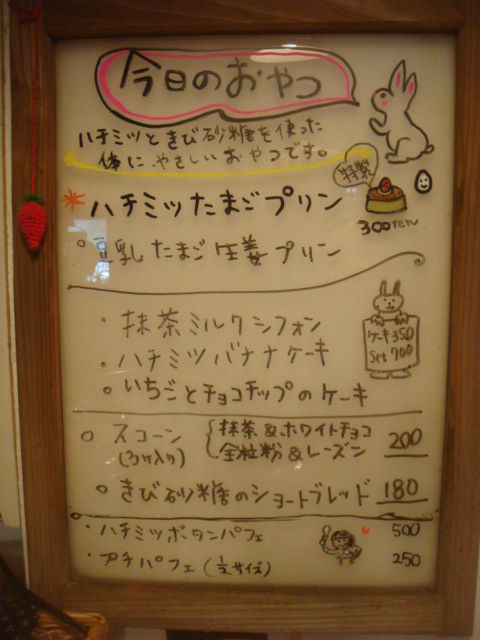 今日のおやつ
ハチミツときび砂糖を使った
体に やさしい おやつです。
特製
ハチミツたまごプリン
300yen
豆乳たまご生姜プリン
・抹茶ミルクシフォン
・ハチミツバナナケーキ
・いちごとチョコチップのケーキ
ケーキ350
Set 700
スコーン
(3ヶ入り)
抹茶&ホワイトチョコ
全粒粉&レーズン
200
きび砂糖のショートブレッド 180
・ハチミツボタンパフェ 500
・プチパフェ (1/2サイズ) 250